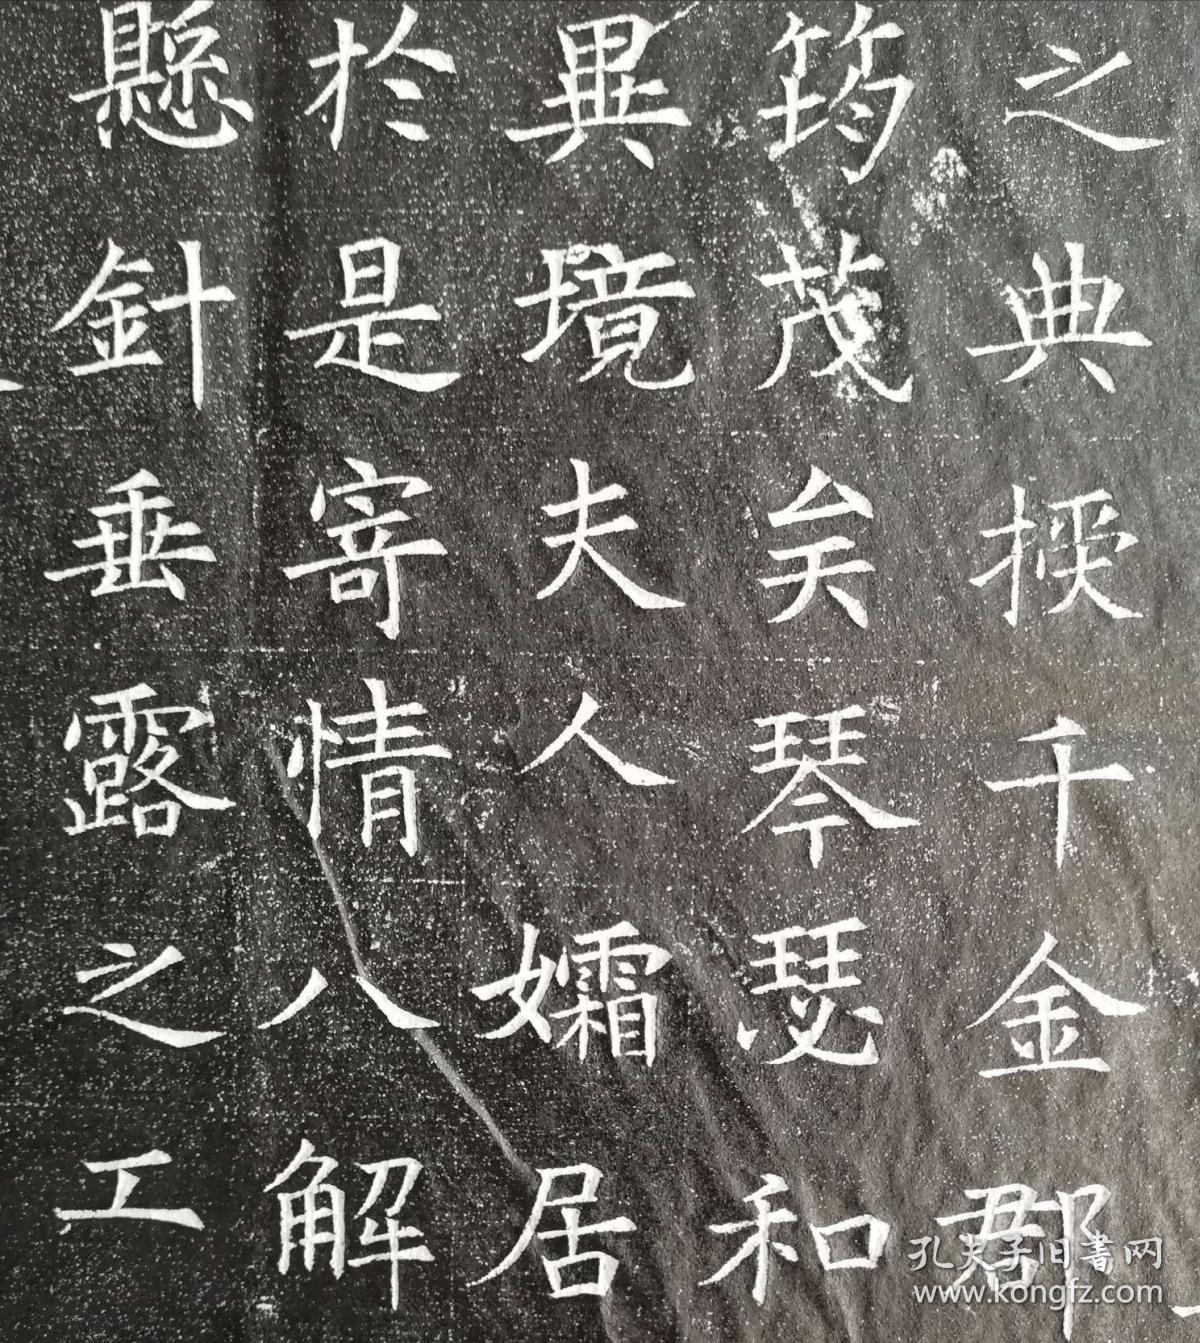 之典掞千金郡
筠茂矣琴瑟和
異境夫人孀居
於是寄情八解
懸針垂露之工
孔夫子旧書网
www.kongfz.com